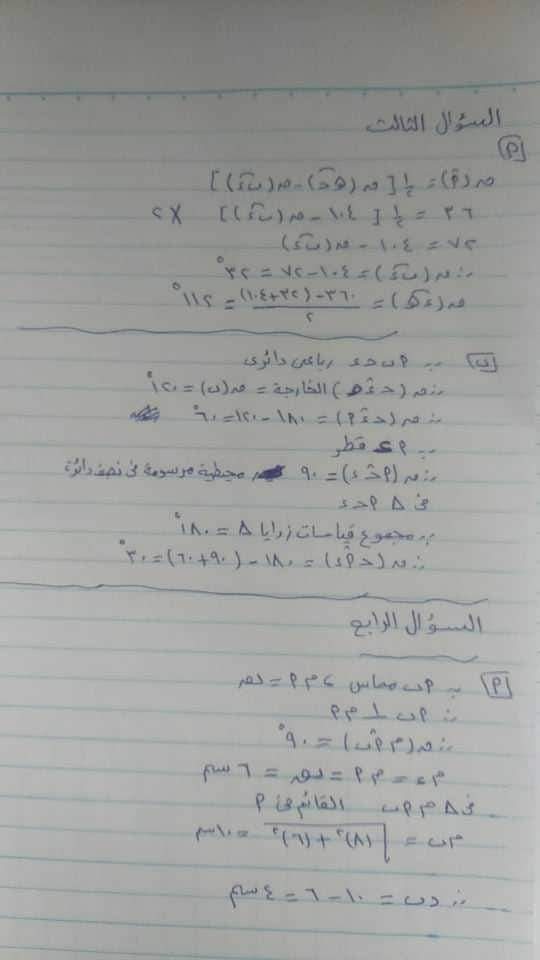 السؤال الثالث
[أ]
ق(أ) = ١/٢ [ق(هـ ج) - ق(ب د)]
٣٦ = ١/٢ [١٠٤ - ق(ب د)] × ٢
٧٢ = ١٠٤ - ق(ب د)
∴ ق(ب د) = ١٠٤ - ٧٢ = ٣٢°
ق(د هـ) = (٣٦٠ - (٣٢ + ١٠٤)) / ٢ = ١١٢°
[ب] ∵ أ ب ج د رباعى دائرى
∴ ق(ج د هـ) الخارجة = ق(ب) = ١٢٠°
∴ ق(ج د أ) = ١٨٠ - ١٢٠ = ٦٠°
∵ أ د قطر
∴ ق(أ ج د) = ٩٠ محيطية مرسومة فى نصف دائرة
فى Δ أ ج د
∵ مجموع قياسات زوايا Δ = ١٨٠°
∴ ق(ج أ د) = ١٨٠ - (٩٠ + ٦٠) = ٣٠°
السؤال الرابع
[أ] ∵ أ ب مماس ، م أ = نق
∴ أ ب ⊥ م أ
∴ ق(م أ ب) = ٩٠°
م د = م أ = نق = ٦ سم
فى Δ م أ ب القائم فى أ
م ب = √((٨)² + (٦)²) = ١٠ سم
∴ د ب = ١٠ - ٦ = ٤ سم